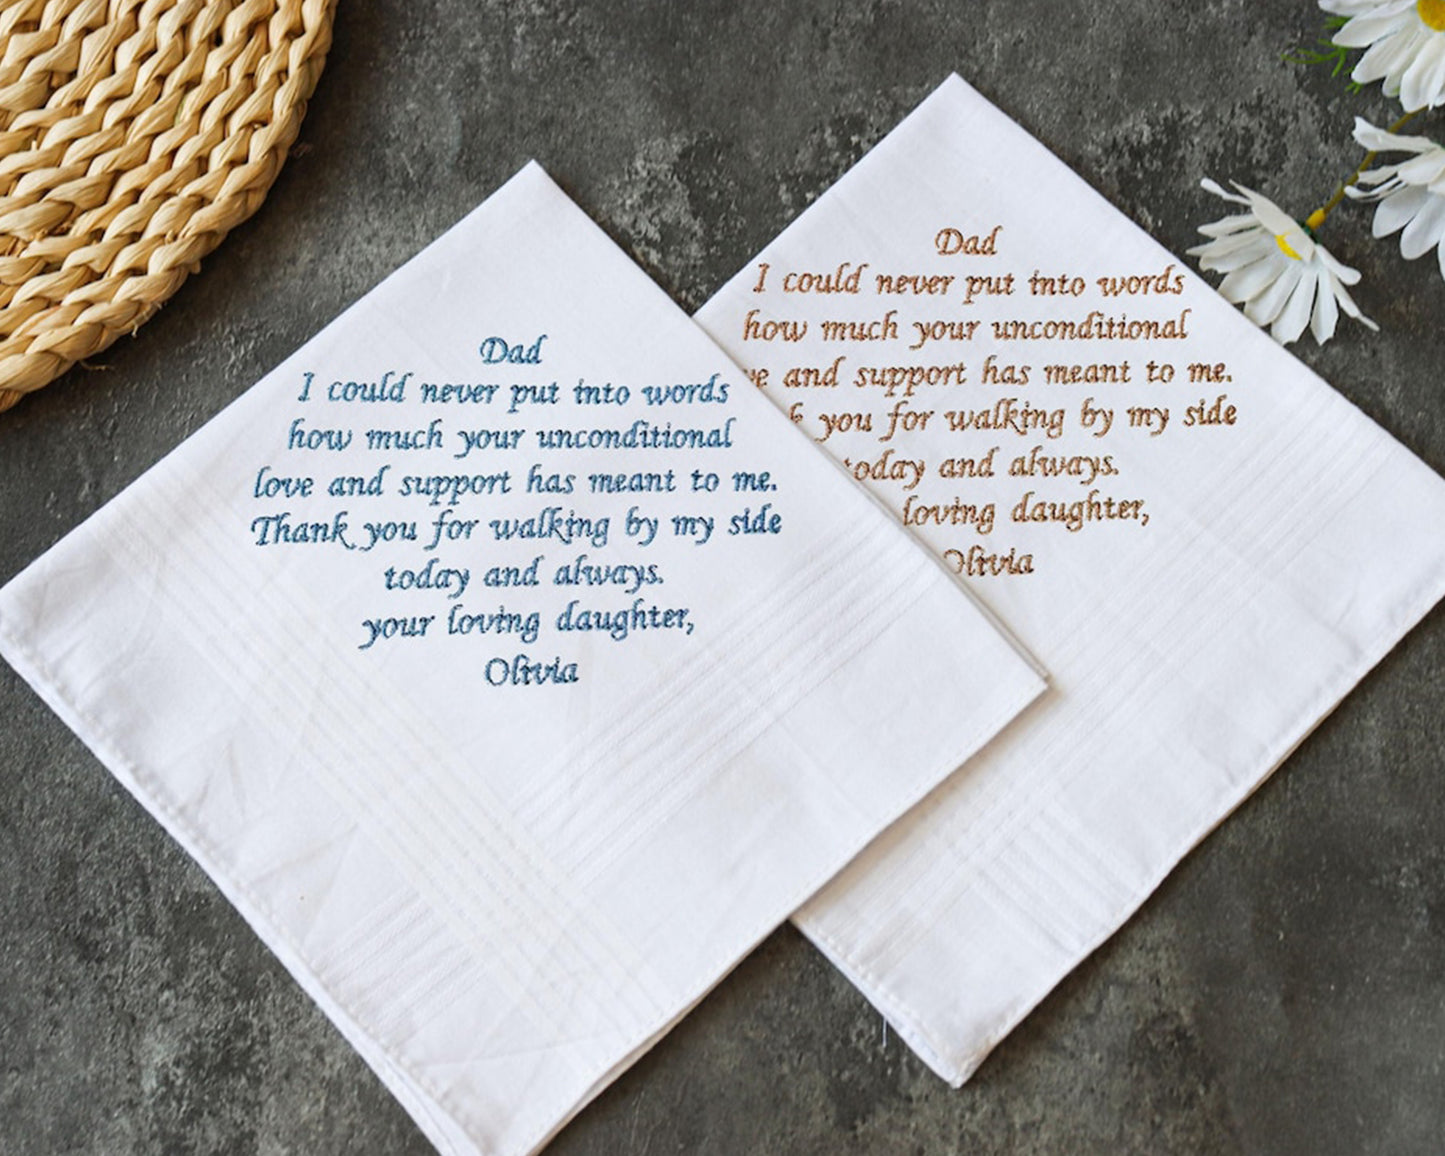 Dad
I could never put into words
how much your unconditional
love and support has meant to me.
Thank you for walking by my side
today and always.
your loving daughter,
Olivia
Dad
I could never put into words
how much your unconditional
and support has meant to me.
you for walking by my side
today and always.
loving daughter,
Olivia